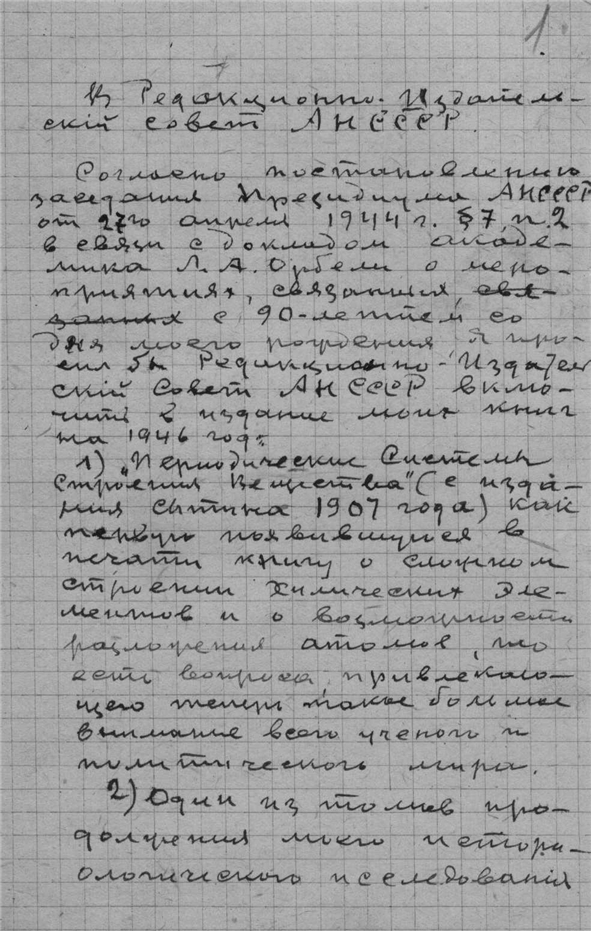 1.
В Редакционно-Издатель-
скій совет АНСССР.
Согласно постановлению
заседания Президиума АНСССР
от 27го апреля 1944 г. §7, п. 2
в связи с докладом акаде-
мика Л. А. Орбели о меро-
приятиях, связанных, свя-
занных с 90-летием со
дня моего рождения я про-
сил бы Редакционно-Издатель
скій Совет АНСССР вклю-
чить в издание моих книг
на 1946 год:
1) „Периодические Системы
Строения Вещества" (с изда-
ния Сытина 1907 года) как
первую появившуюся в
печати книгу о сложном
строении Химических Эле-
ментов и о возможности
разложения атомов, то
есть вопроса, привлекаю-
щего теперь такое большое
внимание всего ученого и
политического мира.
2) Один из томов про-
должения моего истори-
ологического исследованія